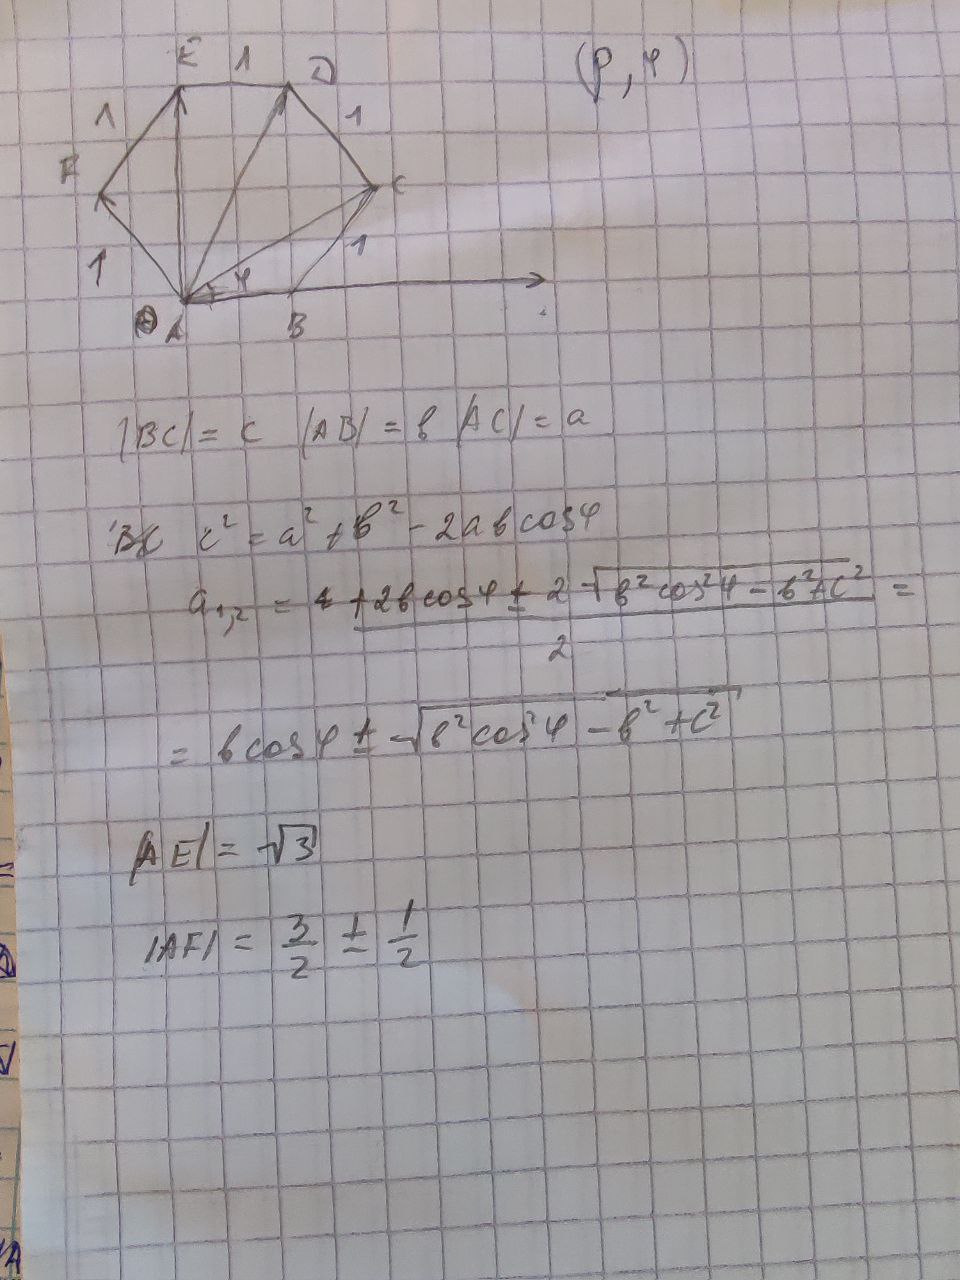 E 1 D (ρ, φ)
1 1
F C
1 φ 1
A B
|BC| = c |AB| = в |AC| = a
c² = a² + в² - 2aв cosφ
a₁,₂ = +2в cosφ ± 2√(в²cos²φ - в² + C²) =
2
= в cosφ ± √(в²cos²φ - в² + c²)
|AE| = √3
|AF| = 3/2 ± 1/2